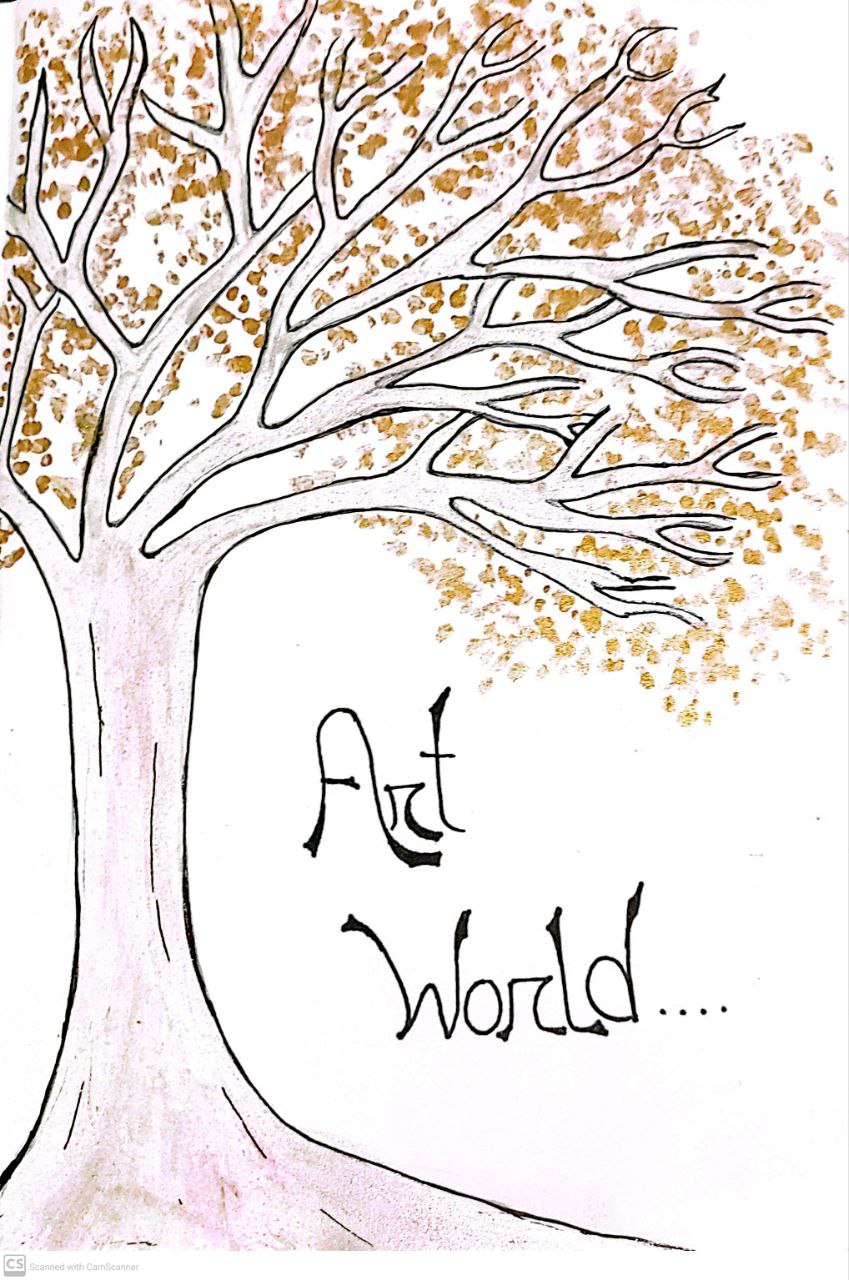 Art
World....
CS Scanned with CamScanner